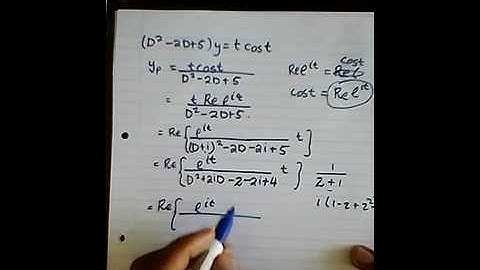 (D² - 2D + 5) y = t cos t
y_p = t cos t / (D² - 2D + 5)
= t Re e^{it} / (D² - 2D + 5).
= Re{ e^{it} / ((D+i)² - 2D - 2i + 5) t }
= Re{ e^{it} / (D² + 2iD - 2 - 2i + 4) t }
= Re{ e^{it}
cos t
Re e^{it} =
cos t = Re e^{it}
1 / (z + 1)
1(1 - z + z²